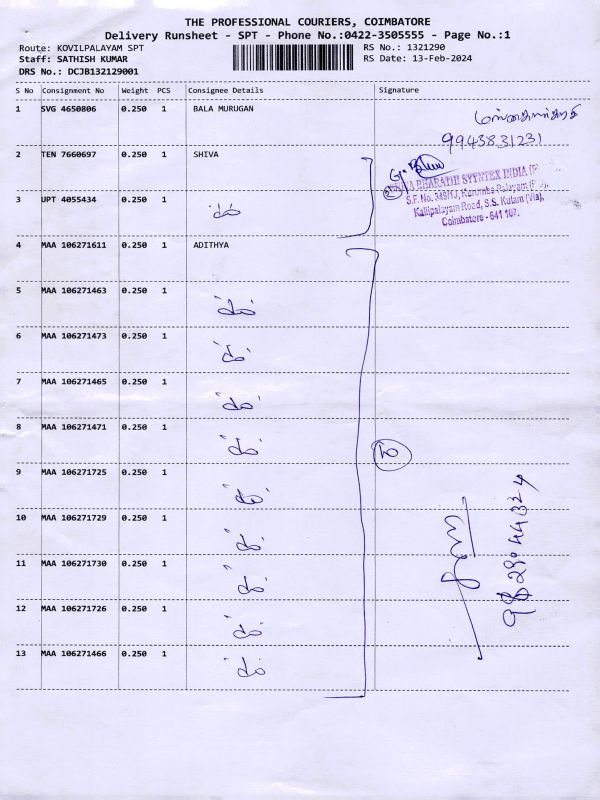 THE PROFESSIONAL COURIERS, COIMBATORE
Delivery Runsheet - SPT - Phone No.:0422-3505555 - Page No.:1
Route: KOVILPALAYAM SPT
RS No.: 1321290
Staff: SATHISH KUMAR
RS Date: 13-Feb-2024
DRS No.: DCJB132129001
S No Consignment No Weight PCS Consignee Details Signature
1 SVG 4650806 0.250 1 BALA MURUGAN
9943831231
2 TEN 7660697 0.250 1 SHIVA
BHARATHI SYNTEX INDIA
S.F. No. 349/1J, Kurumba Palayam
3 UPT 4055434 0.250 1
Kallipalayam Road, S.S. Kulam (Via),
Coimbatore - 641 107.
4 MAA 106271611 0.250 1 ADITHYA
5 MAA 106271463 0.250 1
6 MAA 106271473 0.250 1
7 MAA 106271465 0.250 1
8 MAA 106271471 0.250 1
10
9 MAA 106271725 0.250 1
10 MAA 106271729 0.250 1
11 MAA 106271730 0.250 1
12 MAA 106271726 0.250 1
13 MAA 106271466 0.250 1